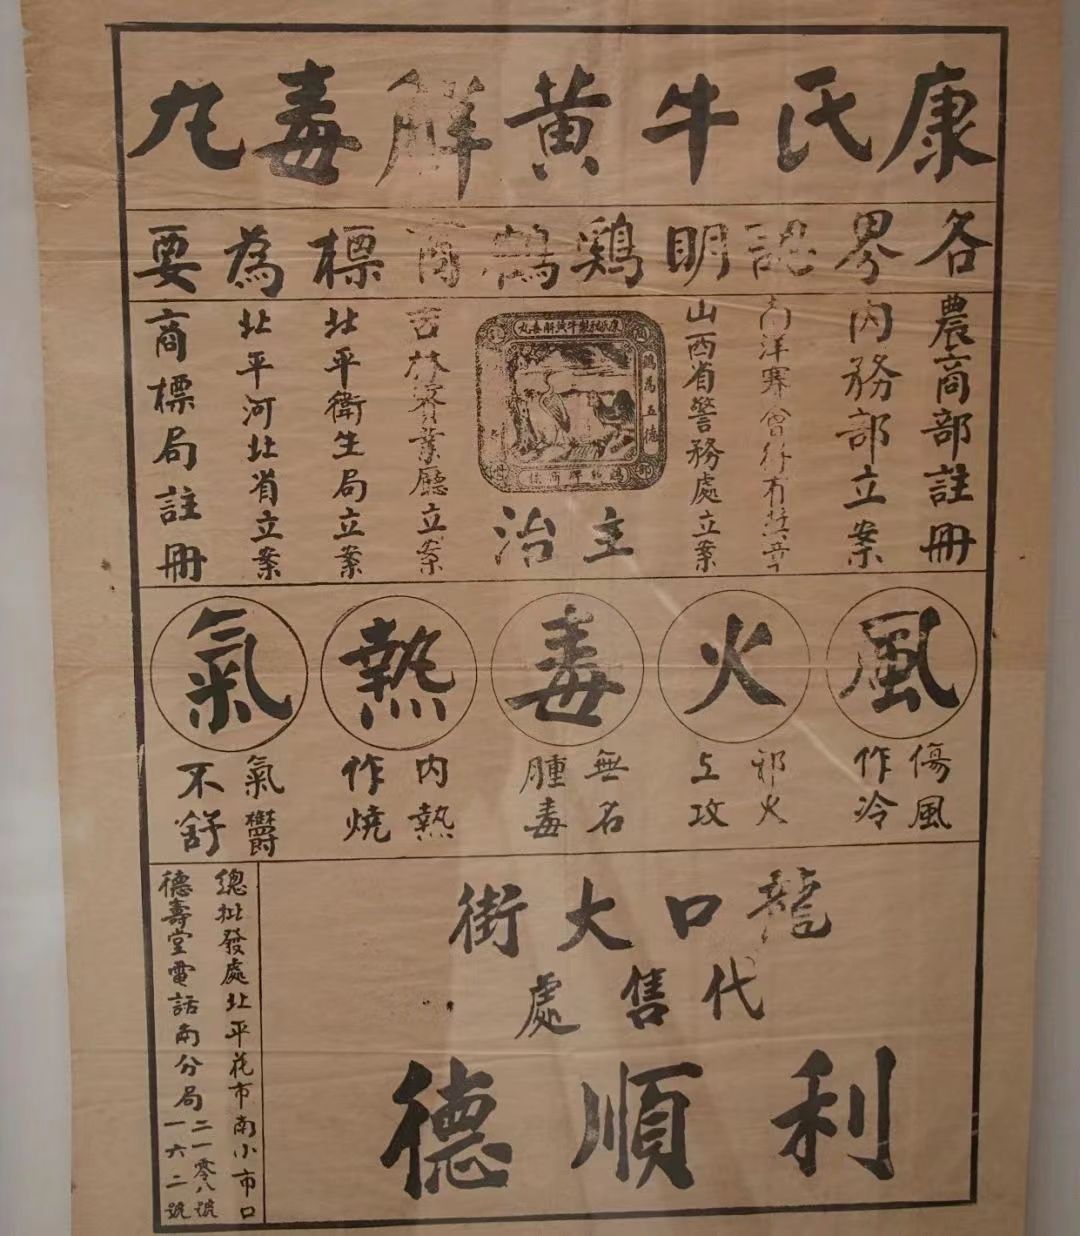 康氏牛黄解毒丸
各界認明鷄鶴商標為要
農商部註冊
内務部立案
南洋賽會得有奬章
山西省警務處立案
鷄為五德
主治
吉林實業廳立案
北平衛生局立案
北平河北省立案
商標局註冊
風
傷風
作冷
火
邪火
上攻
毒
無名
腫毒
熱
内熱
作燒
氣
氣鬱
不舒
龍口大街
代售處
利順德
總批發處北平花市南小市口
德壽堂電話南分局
二一零八號
一六二號